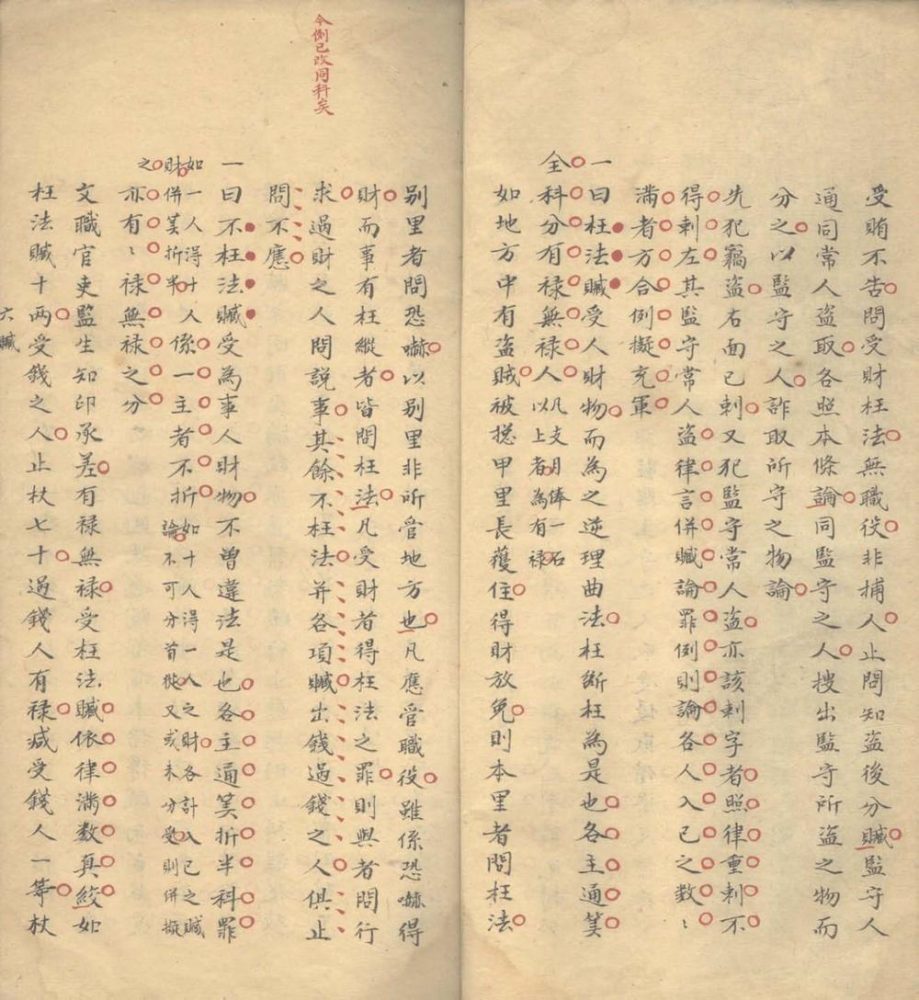 受賄不告問受財枉法無職役非捕人止問知盜後分贓監守人
通同常人盜取各照本條論同監守之人搜出監守所盜之物而
分之以監守之人詐取所守之物論
先犯竊盜右面已刺又犯監守常人盜亦該刺字者照律重刺不
得刺左其監守常人盜律言併贓論罪例則論各人入己之數〻
滿者方合例擬充軍
一曰枉法贓受人財物而為之逆理曲法枉斷枉為是也各主通筭
全科分有祿無祿人凡支月俸一石以上者為有祿
如地方中有盜賊被捴甲里長獲住得財放免則本里者問枉法
別里者問恐嚇以別里非所管地方也凡應管職役雖係恐嚇得
財而事有枉縱者皆問枉法凡受財者得枉法之罪則與者問行
求過財之人問說事其餘不枉法并各項贓出錢過錢之人俱止
問不應
一曰不枉法贓受為事人財物不曾違法是也各主通筭折半科罪
如一人得十人財併筭折半係一主者不折如十人得一人之財各計入己之贓論不可分首從又或未分受則併擬之
亦有〻祿無祿之分
文職官吏監生知印承差有祿無祿受枉法贓依律滿数真絞如
枉法贓十兩受錢之人止杖七十過錢人有祿減受錢人一等杖
六贓
令例已改同科矣